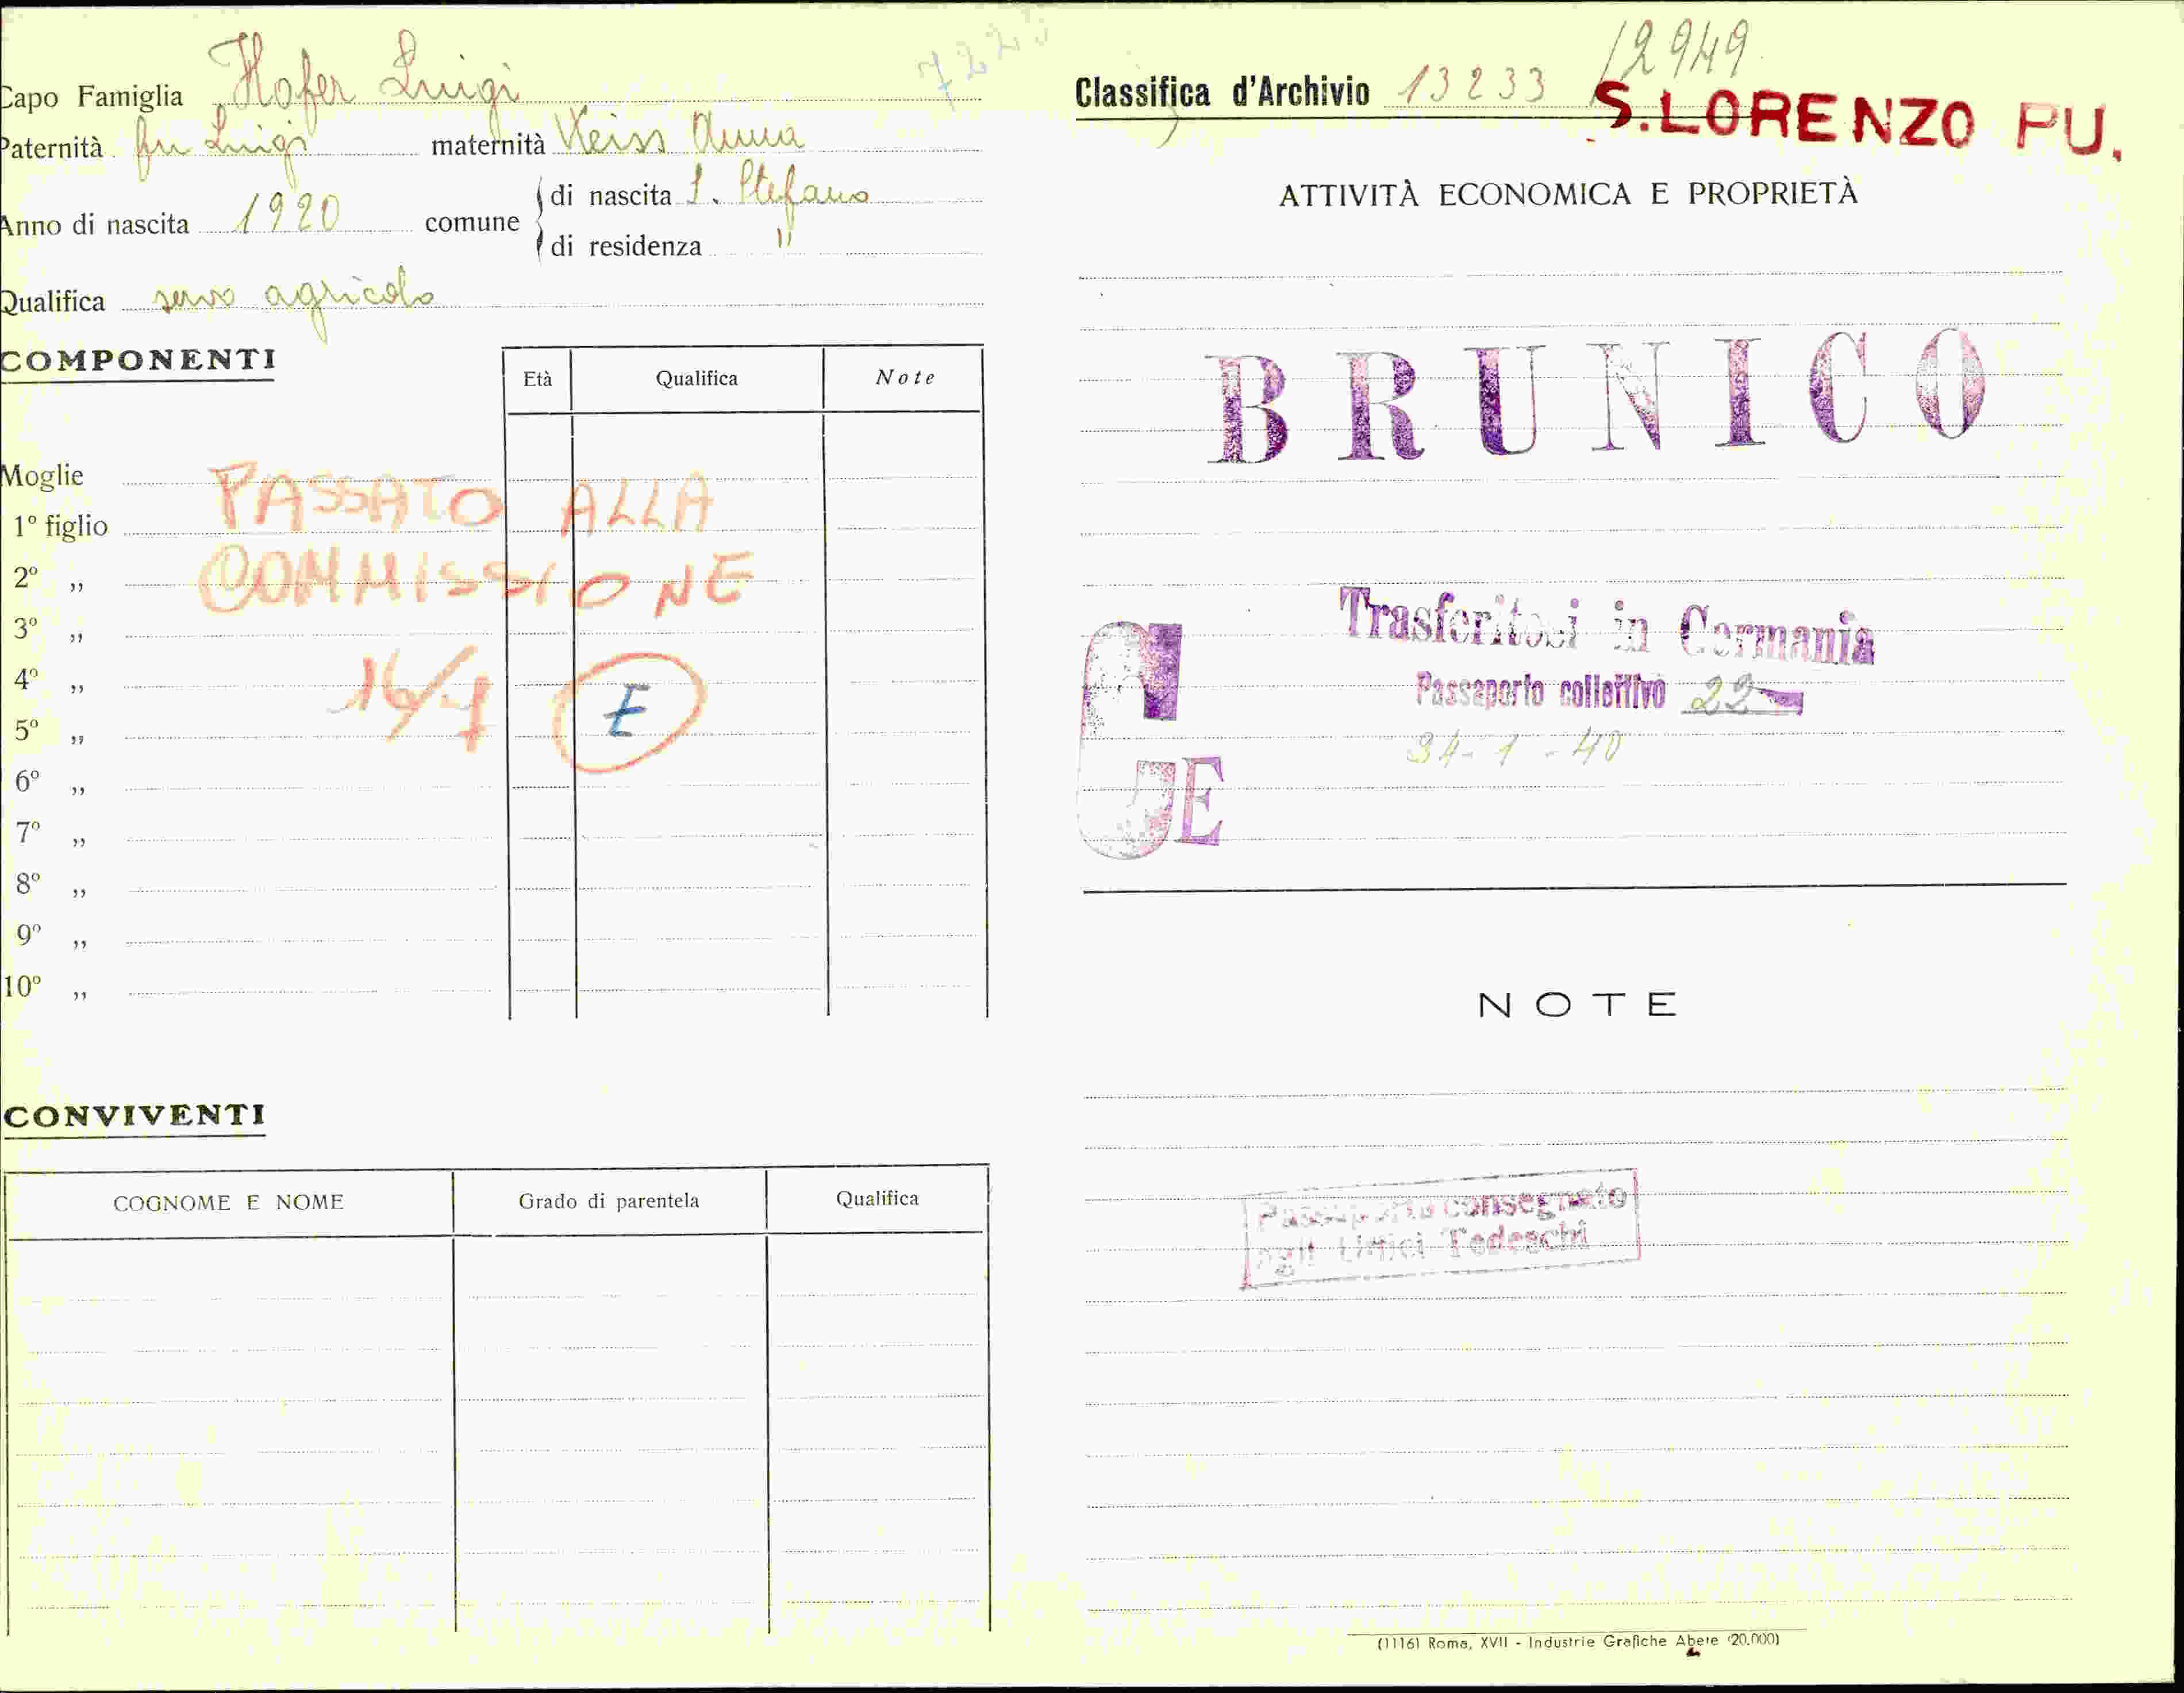 Capo Famiglia Hofer Luigi
Paternità fu Luigi maternità Weiss Anna
Anno di nascita 1920 comune
di nascita S. Stefano
di residenza "
Qualifica servo agricolo
COMPONENTI
Età Qualifica Note
Moglie
1º figlio
2º „
3º „
4º „
5º „
6º „
7º „
8º „
9º „
10º „
PASSATO ALLA
COMMISSIONE
16/1 E
CONVIVENTI
COGNOME E NOME Grado di parentela Qualifica
12949
Classifica d'Archivio 13233
S.LORENZO PU.
ATTIVITÀ ECONOMICA E PROPRIETÀ
BRUNICO
Trasferitosi in Germania
Passaporto collettivo 22
E
NOTE
Passaporto consegnato
agli Uffici Tedeschi
(1116) Roma, XVII - Industrie Grafiche Abete (20.000)